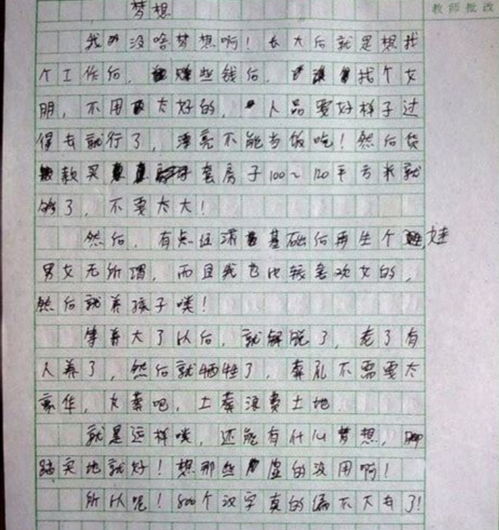 梦想
教师批改
我没啥梦想啊！长大后就是想找
个工作后，赚些钱后，找个女
朋，不用太好的，人品要好样子过
得去就行了，漂亮不能当饭吃！然后贷
款买套房子100～120平方米就
够了，不要太大！
然后，有点经济基础后再生个娃，
男女无所谓，而且我也比较喜欢女的，
然后就养孩子喽！
等养大了以后，就解脱了，老了有
人养了，然后就牺牲了，葬礼不需要太
豪华，火葬吧，土葬浪费土地
就是这样喽，还能有什么梦想，脚
踏实地就好！想那些虚的没用啊！
所以呢！800个汉字真的编不下去了！